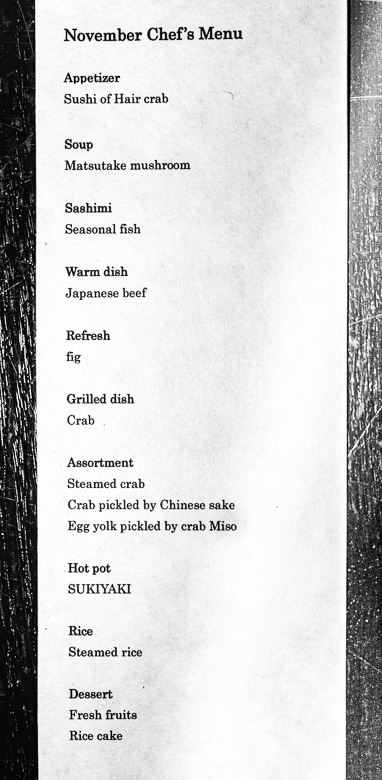 November Chef's Menu
Appetizer
Sushi of Hair crab
Soup
Matsutake mushroom
Sashimi
Seasonal fish
Warm dish
Japanese beef
Refresh
fig
Grilled dish
Crab
Assortment
Steamed crab
Crab pickled by Chinese sake
Egg yolk pickled by crab Miso
Hot pot
SUKIYAKI
Rice
Steamed rice
Dessert
Fresh fruits
Rice cake